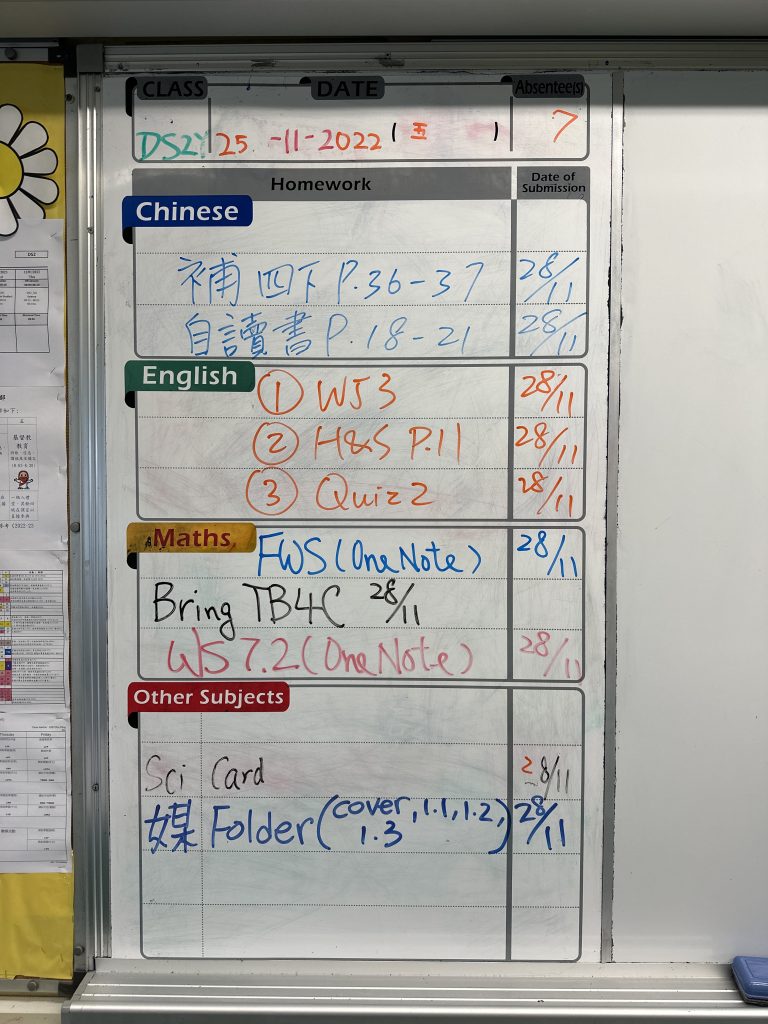 CLASS DATE Absentee(s)
DS2Y 25 -11-2022 ( 五 ) 7
Homework Date of Submission
Chinese
補 四下 P.36-37 28/11
自讀書 P.18-21 28/11
English ① WS3 28/11
② H&S P.11 28/11
③ Quiz 2 28/11
Maths FWS (OneNote) 28/11
Bring TB4C 28/11
WS 7.2 (OneNote) 28/11
Other Subjects
Sci Card 28/11
媒 Folder (cover, 1.1, 1.2, 1.3) 28/11
DS2
基督教
教育
Thursday Friday